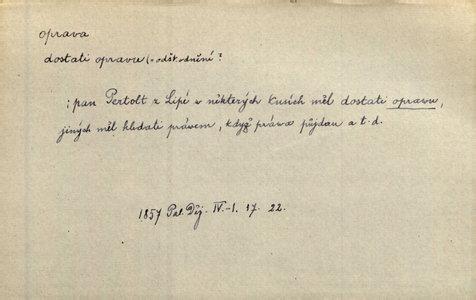 oprava
dostati opravu (= odškodnění?
: pan Pertolt z Lipé w některých kusích měl dostati oprawu,
jiných měl hledati právem, když práwa půjdau a t. d.
1857 Pal. Děj. IV.-1. 17. 22.